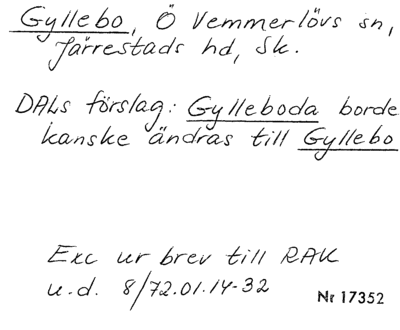 Gyllebo, Ö Vemmerlövs sn,
Järrestads hd, Sk.
DALs förslag: Gylleboda borde
kanske ändras till Gyllebo
Exc ur brev till RAK
u.d. 8/72.01.14-32
Nr 17352